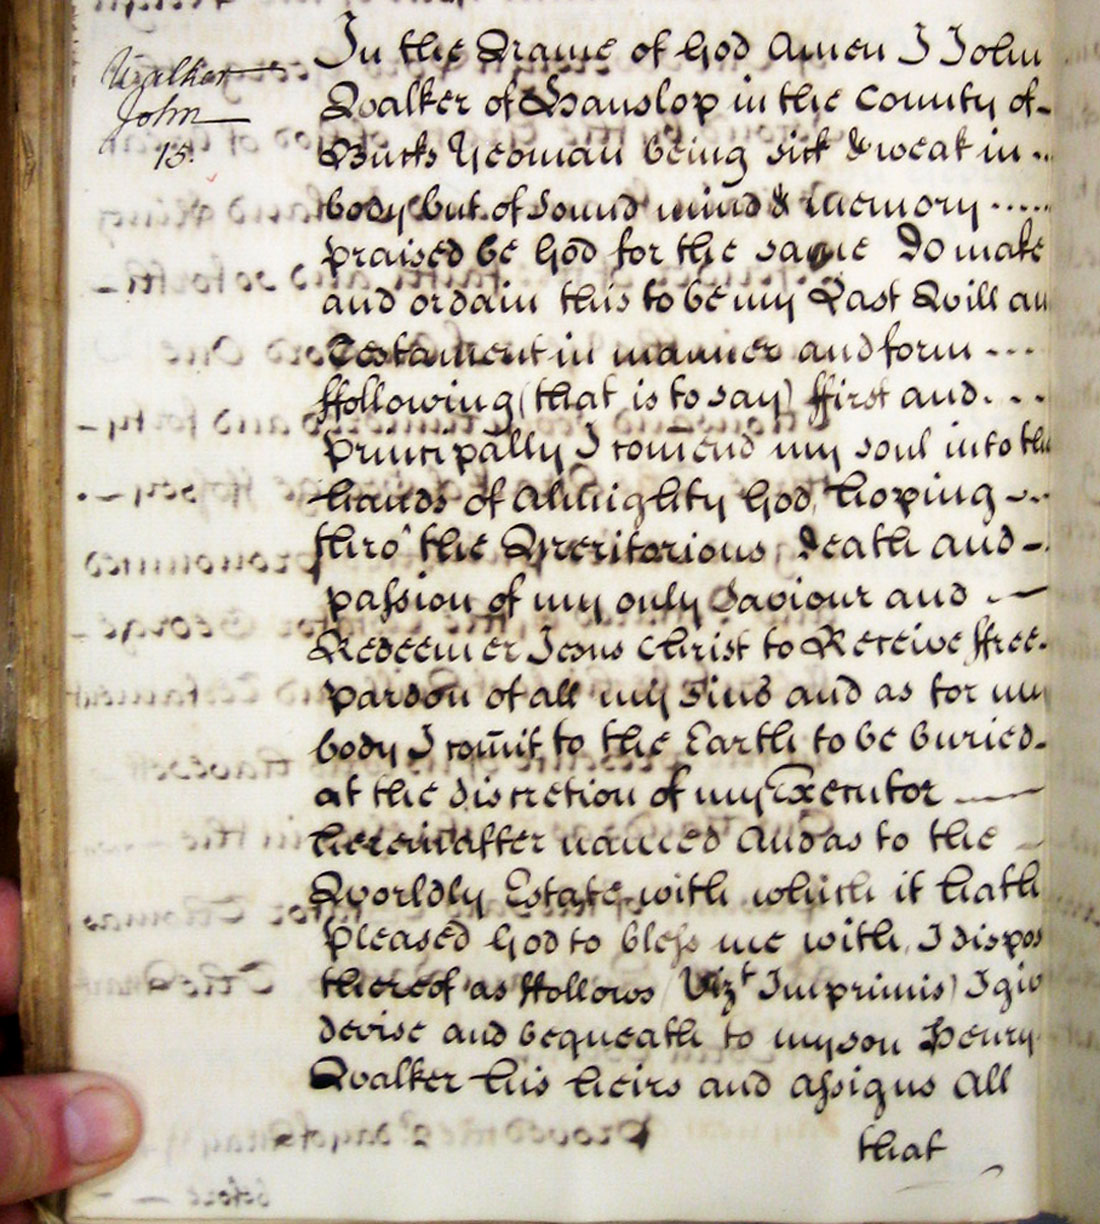 Walker
John
15.
In the Name of God Amen I John
Walker of Hanslop in the County of
Bucks Yeoman being sick & weak in
body but of sound mind & memory
praised be God for the same Do make
and ordain this to be my Last Will an
Testament in manner and form
ffollowing (that is to say) ffirst and
principally I com̄end my soul into the
hands of Almighty God, hoping
thro' the Meritorious Death and
passion of my only Saviour and
Redeemer Jesus Christ to Receive ffree
pardon of all my Sins and as for my
body I com̄it to the Earth to be buried
at the discretion of my Executor
hereinafter named And as to the
Worldly Estate with which it hath
pleased God to bless me with, I dispos
thereof as ffollows (Vizt Imprimis) I giv
devise and bequeath to my son Henry
Walker his heirs and assigns All
that